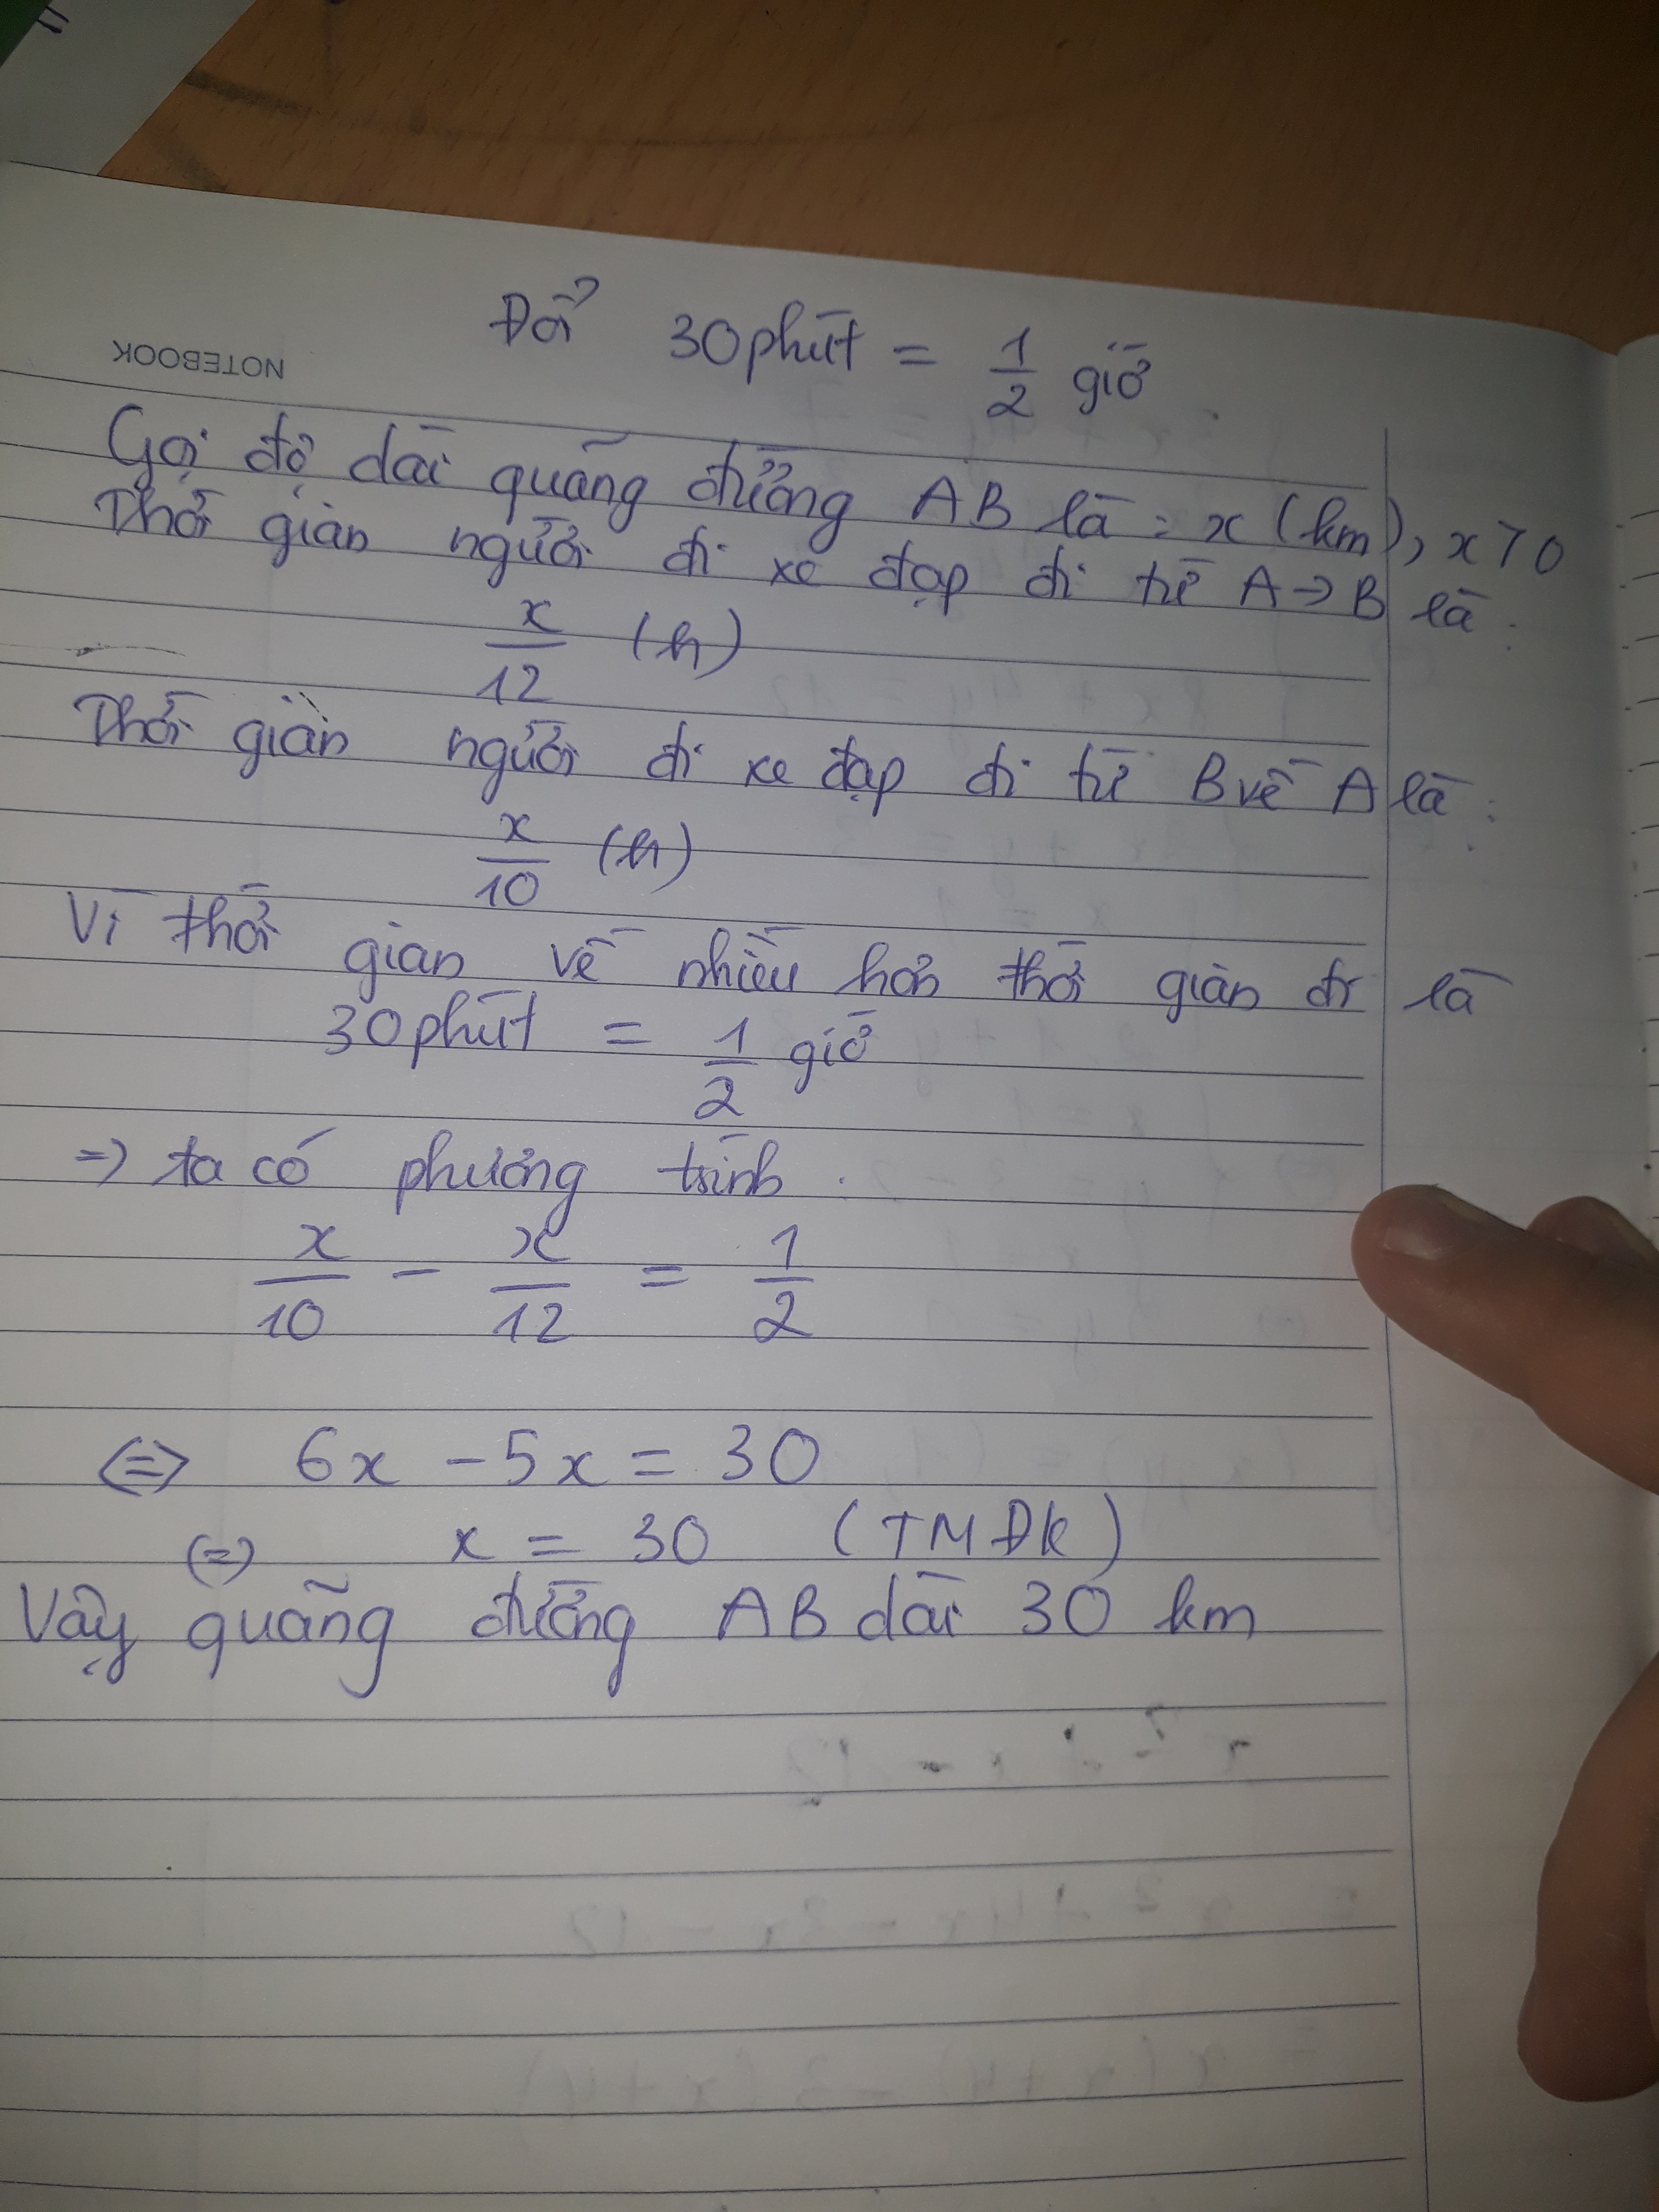 NOTEBOOK
Đổi 30 phút = 1/2 giờ
Gọi độ dài quãng đường AB là : x (km), x > 0
Thời gian người đi xe đạp đi từ A → B là :
x/12 (h)
Thời gian người đi xe đạp đi từ B về A là :
x/10 (h)
Vì thời gian về nhiều hơn thời gian đi là
30 phút = 1/2 giờ
=> ta có phương trình :
x/10 - x/12 = 1/2
<=> 6x - 5x = 30
<=> x = 30 (TMĐK)
Vậy quãng đường AB dài 30 km